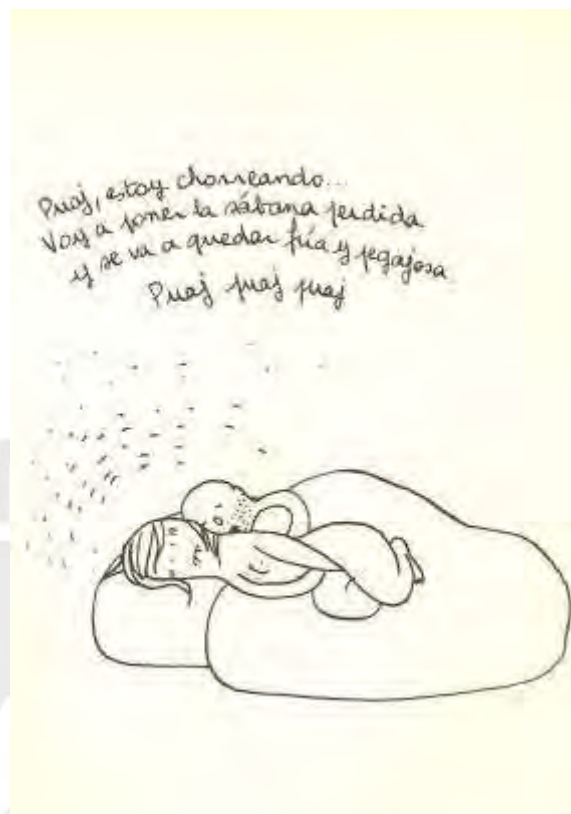 Puaj, estoy chorreando...
Voy a poner la sábana perdida
y se va a quedar fría y pegajosa
Puaj puaj puaj